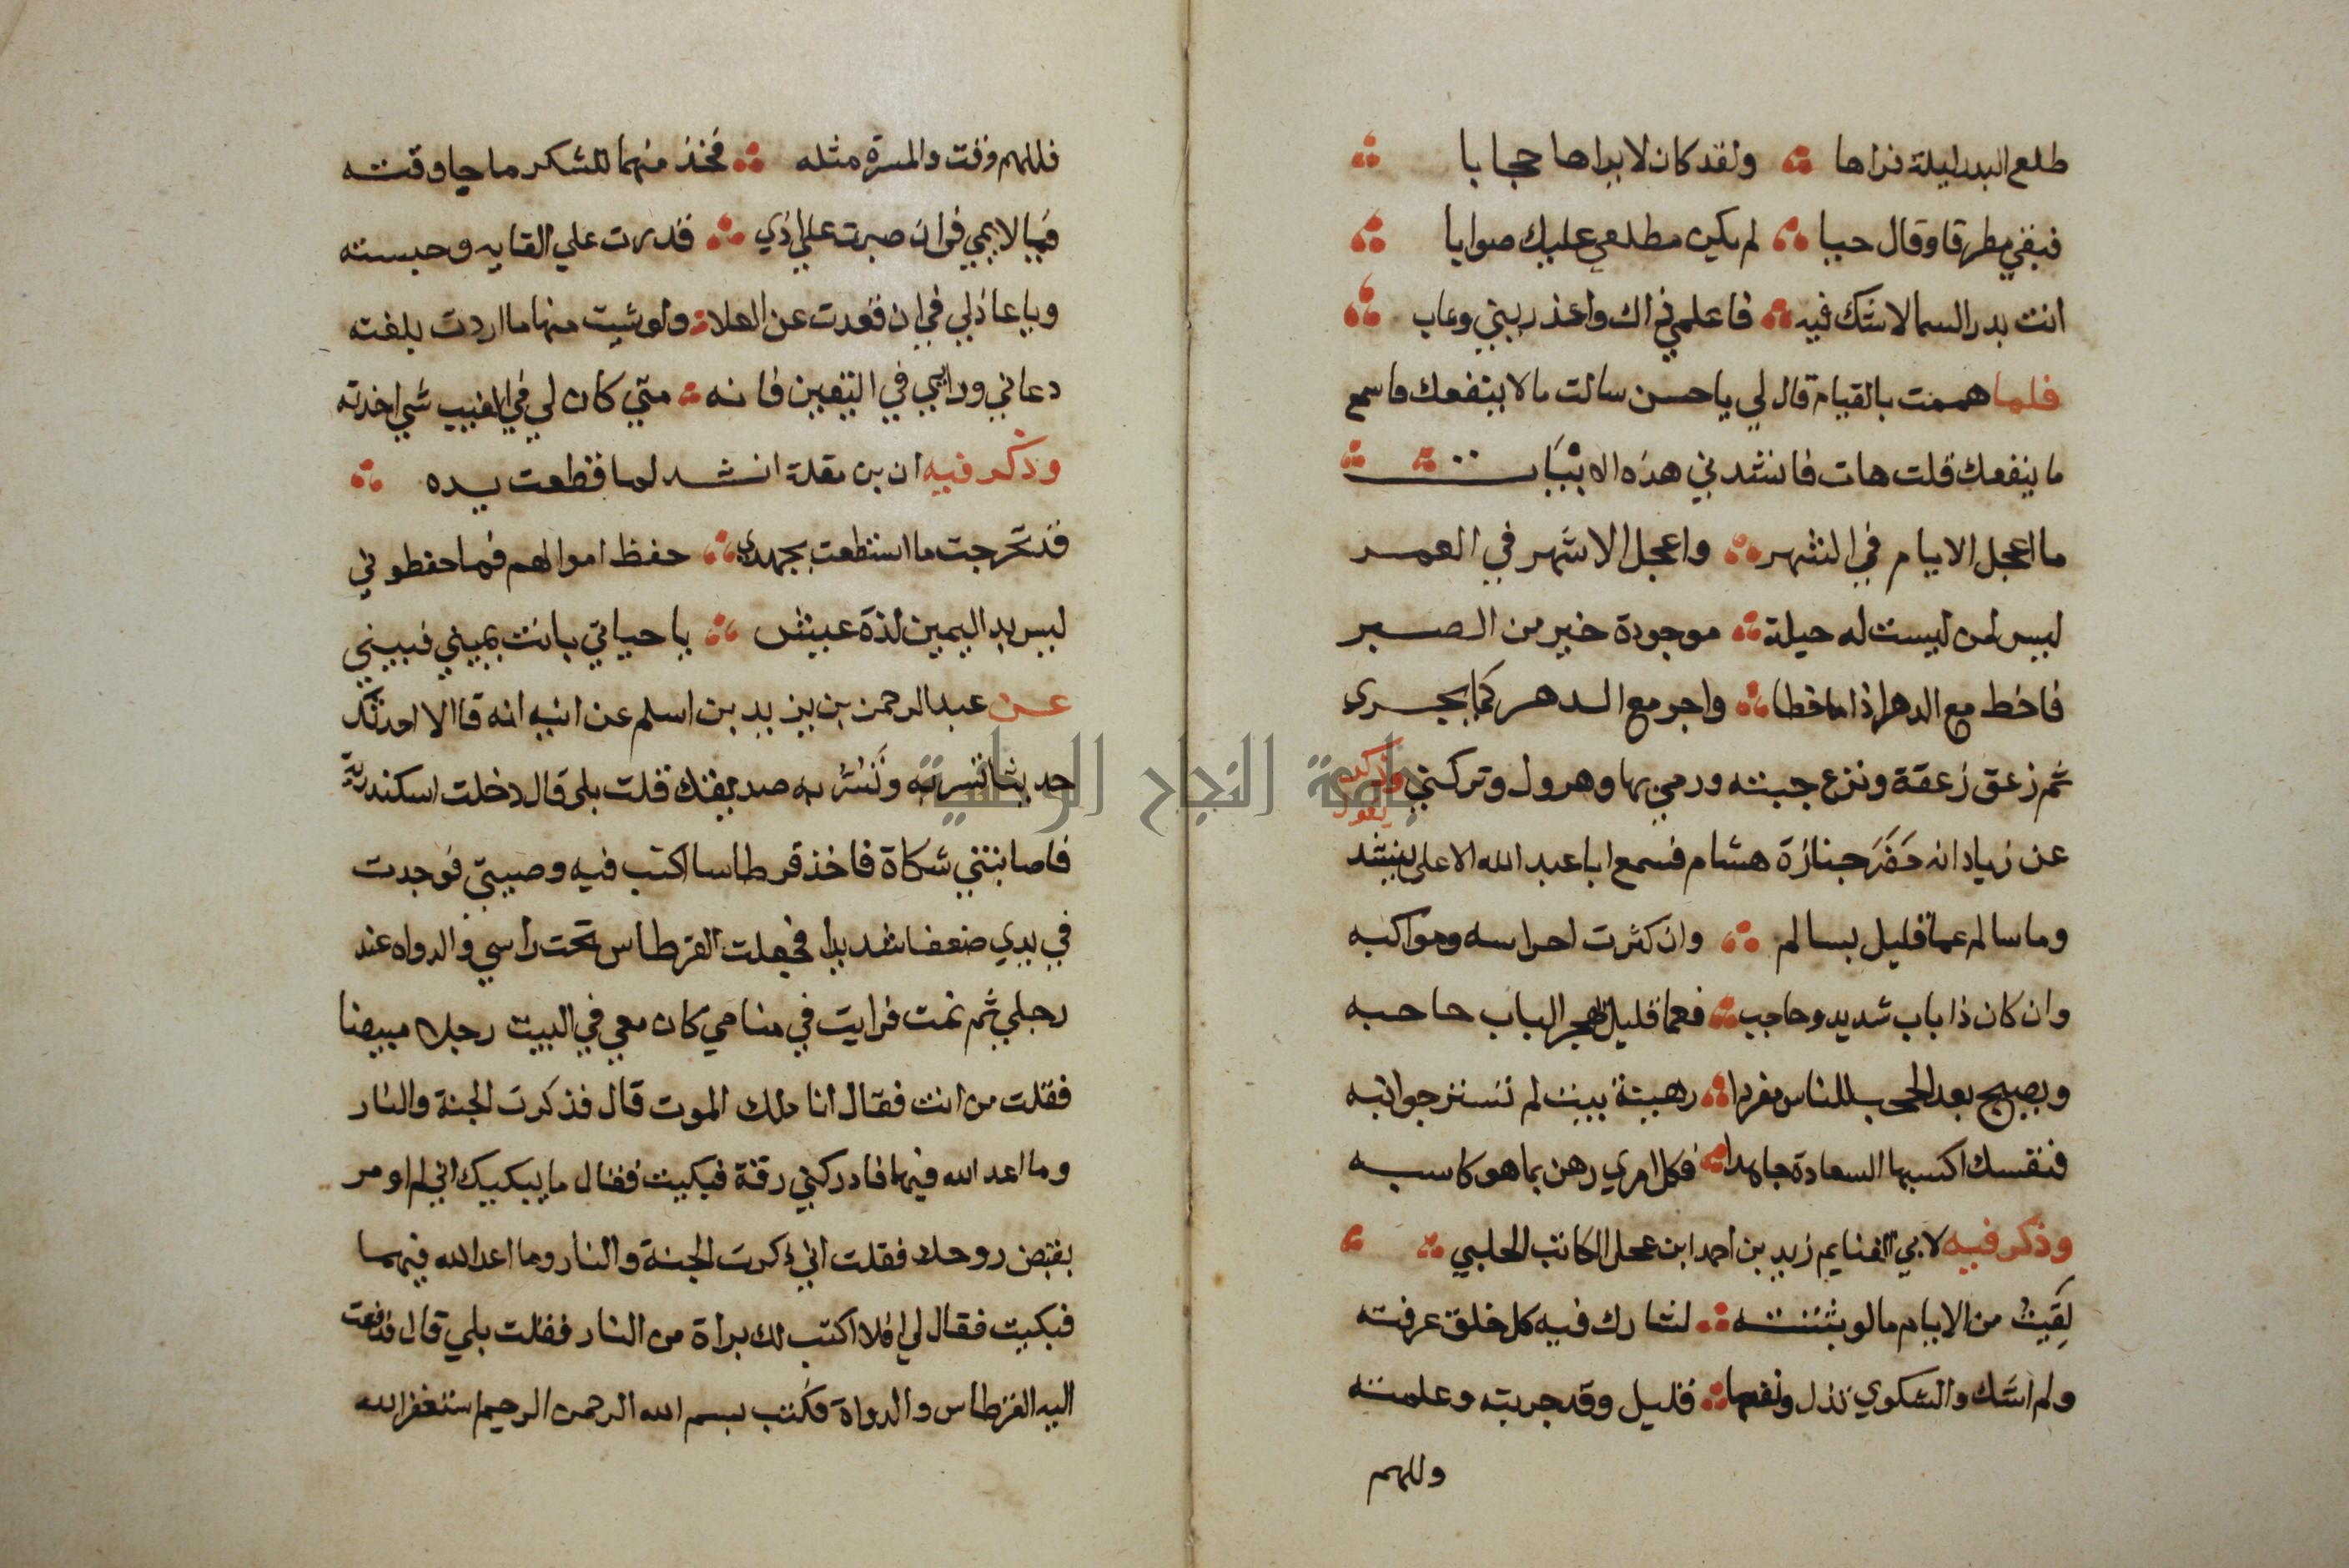 طلع البدر ليلة فراها ولقد كان لا يراها حجابا
فبقي مطرقا وقال حبيبا لم يكن مطلعي عليك صوابا
انت بدر السما لاشك فيه فاعلمي ذاك واعذريني وعاب
فلما هممت بالقيام قال لي يا حسن سالت مالا ينفعك فاسمع
ما ينفعك قلت هات فانشدني هذه الابيات
ما اعجل الايام في الشهر واعجل الاشهر في العمر
ليس لمن ليست له حيلة موجودة خير من الصبر
فاخط مع الدهر اذا ما خطا واجر مع الدهر كما يجري
ثم زعق زعقة ونزع جبته ورمي بها وهرول وتركني وذكر
يقول
عن زياد انه حضر جنازة هشام فسمع ابا عبد الله الاعلي ينشد
وما سالم عما قليل بسالم وان كثرت احراسه ومواكبه
وان كان ذا باب شديد وحاجب فعما قليل يهجر الباب حاجبه
ويصبح بعد الحجب للناس مفردا رهينة بيت لم تستر جوانبه
فنفسك اكسبها السعادة جاهدا فكل امري رهن بما هو كاسبه
وذكر فيه لابي الغنايم زيد بن احمد ابن عجل الكاتب الحلبي
لقيت من الايام مالو بثثته لشارك فيه كل خلق عرفته
ولم اشك والشكوي تذل ونفعها قليل وقد جربته وعلمته
وللهم
فللهم وقت والمسرة مثله فخذ منهما للشكر ما جا وقته
فيا لايمي في ان صبرت علي اذي قدرت علي القايه وحبسته
ويا عاذلي في ان قعدت عن العلا ولو شيت منها ما اردت بلغته
دعاني ورايي في التغبين فانه متي كان لي في الغيب شي اخذته
وذكر فيه ان بن مقلة انشد لما قطعت يده
قد تحرجت ما استطعت بجهدي حفظ اموالهم فما حفظوني
ليس بد اليمين لذة عيش يا حياتي بانت يميني فبيني
عن عبد الرحمن بن يزيد بن اسلم عن ابيه انه قال الا احدثك
حديثا تسر به وتسر به صديقك قلت بلي قال دخلت اسكندرية
فاصابتني شكاة فاخذ قرطاسا اكتب فيه وصيتي فوجدت
في يدي ضعفا شديدا فجعلت القرطاس تحت راسي والدواه عند
رجلي ثم نمت فرايت في منامي كان معي في البيت رجلا مبيضا
فقلت من انت فقال انا ملك الموت قال فذكرت الجنة والنار
وما اعد الله فيهما فادركتني رقة فبكيت فقال ما يبكيك اني لم اومر
بقبض روحك فقلت اني ذكرت الجنة والنار وما اعد الله فيهما
فبكيت فقال لي افلا اكتب لك براة من النار فقلت بلي قال فدفعت
اليه القرطاس والدواة فكتب بسم الله الرحمن الرحيم استغفر الله
جامعة النجاح الوطنية